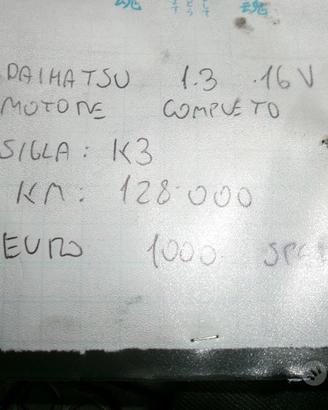 DAIHATSU 1.3 .16V
MOTORE COMPLETO
SIGLA: K3
KM: 128.000
EURO 1000